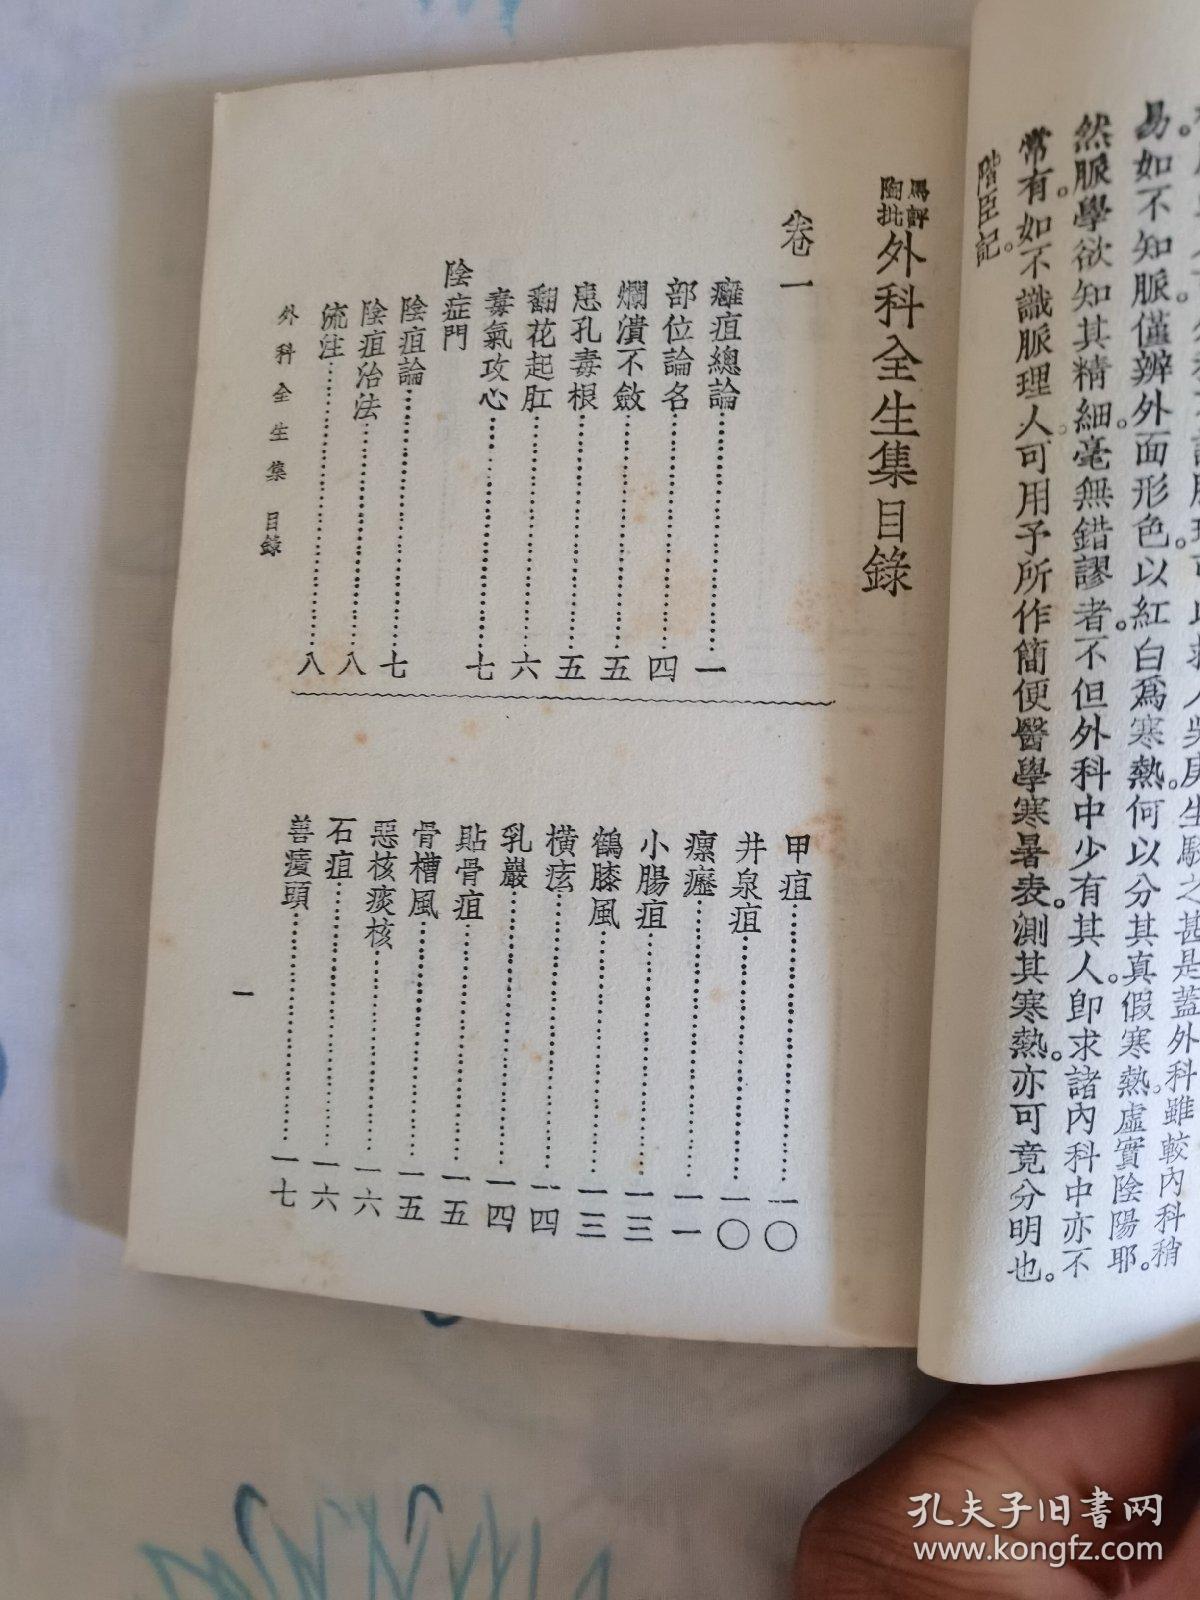 易。如不知脈。僅辨外面形色。以紅白爲寒熱。何以分其真假寒熱。虛實陰陽耶。
然脈學欲知其精細。毫無錯謬者。不但外科中少有其人。即求諸內科中亦不
常有。如不識脈理人。可用予所作簡便醫學寒暑表。測其寒熱。亦可竟分明也。
階臣記。
馬評
陶批
外科全生集目錄
卷一
癰疽總論 一
部位論名 四
爛潰不斂 五
患孔毒根 五
翻花起肛 六
毒氣攻心 七
陰症門
陰疽論 七
陰疽治法 八
流注 八
甲疽 一〇
井泉疽 一〇
瘰癧 一一
小腸疽 一三
鶴膝風 一三
橫痃 一四
乳巖 一四
貼骨疽 一五
骨槽風 一五
惡核痰核 一六
石疽 一六
善瘡頭 一七
外科全生集 目錄
一
孔夫子旧书网
www.kongfz.com